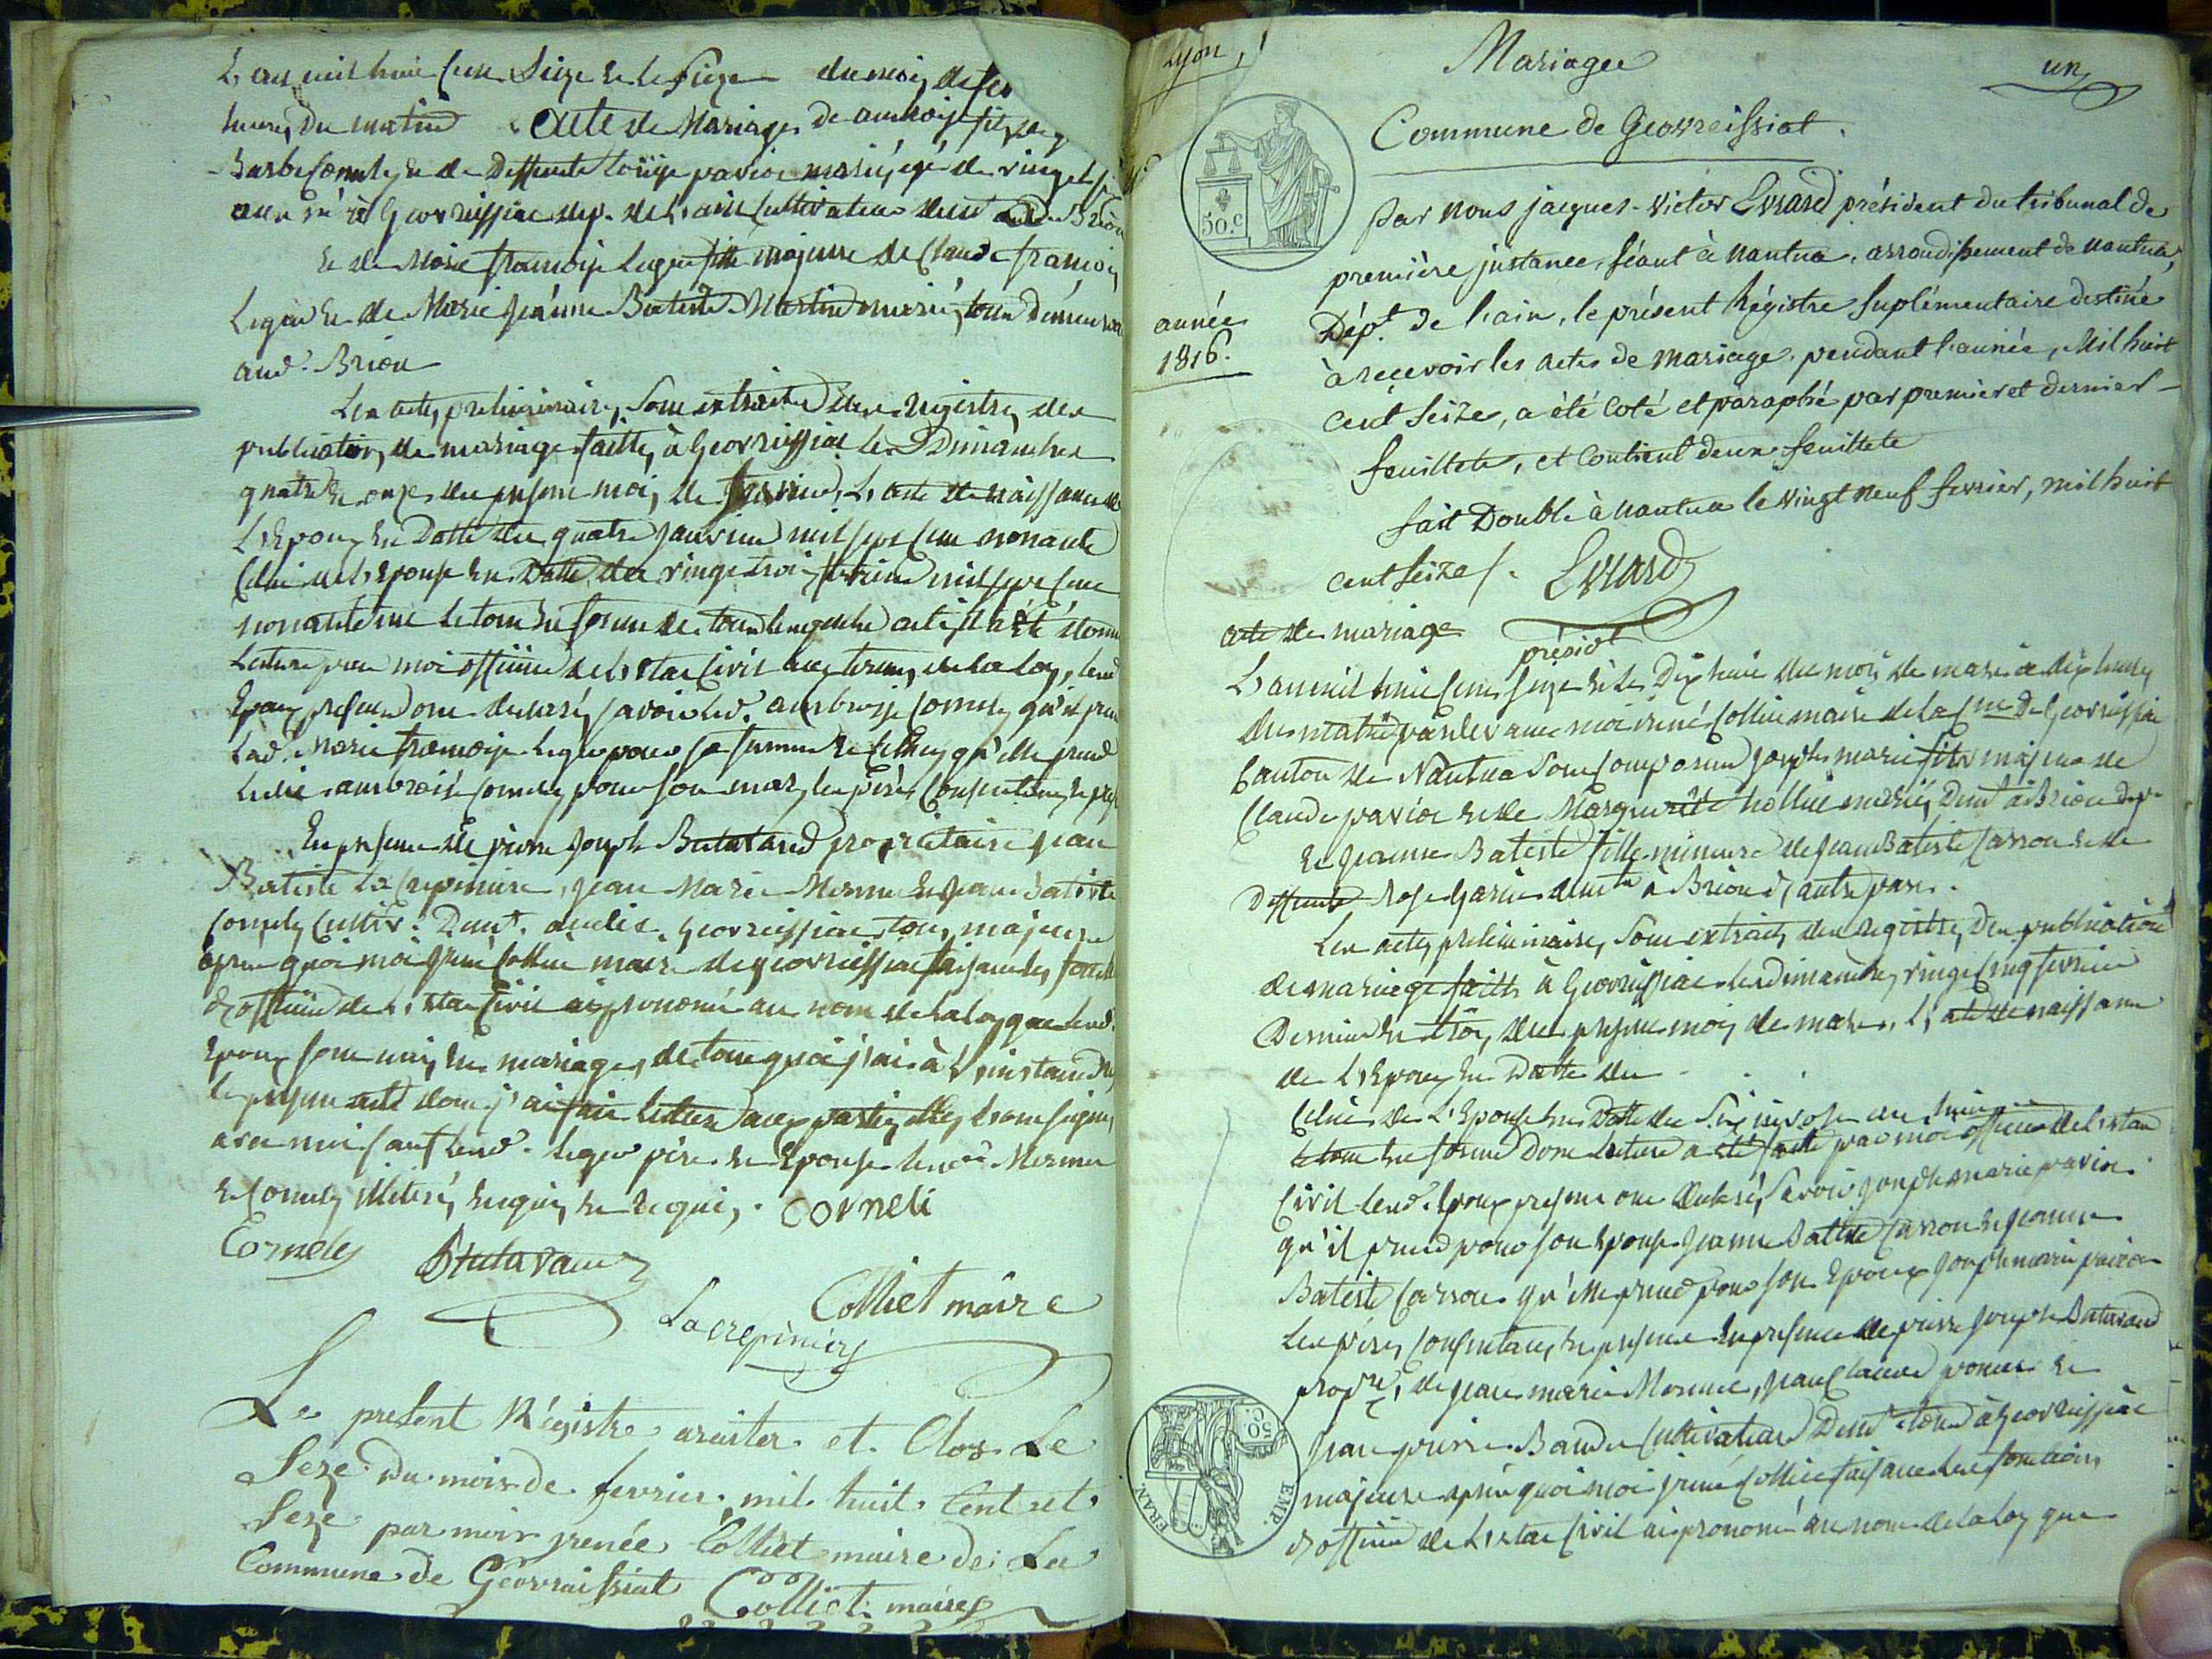 L'an mil huit cent seize et le seize du mois de fev
heures du matin acte de Mariage de ambroise fils de
Barbe Cornely et de deffunte Louise pavioz mariés, agé de vingt
ans né à Geovreissiat dep. de l'ain Cultivateur dem. aud. Brion
Et de Marie françoise Leger fille majeure de Claude françois
Leger et de Marie jeanne Batiste Martin mariés, tous demeurant
aud. Brion
Les actes preliminaires, sont extraits des registres des
publications de mariage faittes à Geovreissiat les Dimanches
quatre et onze du present mois de fevrier, L'acte de naissance de
L'Epoux en datte du quatre janvier mil sept cent nonante
Celui de L'Epouse en datte du vingt trois fevrier mil sept cent
nonante une le tout en forme de tous lesquels actes il a été donné
Lecture par moi officier de L'etat Civil aux termes de la loy, lesd.
Epoux presents ont declaré, savoir led. ambroise Cornely qu'il prend
Lad. Marie françoise Leger pour sa femme et celle cy qu'elle prend
ledit ambroise Cornely pour son mary, les pères Consentans et pres
En presence de pierre joseph Butavand propriétaire jean
Batiste La Crepiniere, jean Marie Mermet et jean Batiste
Cornely Cultiv. Demt. audit Geovreissiat tous majeurs
après quoi moi jrené Colliet maire de geovreissiat faisant les fonct
d'officier de L'etat Civil ai prononcé au nom de la loy que lesd.
Epoux sont unis en mariage, de tout quoi j'ai à L'instant dressé
le present acte dont j'ai fait lecture aux parties, elles l'ont signé
avec moi sauf lesd. Leger père et Epouse lesd. Mermet
et Cornely illitérés, enquis et requis. Corneli
Cornely Butavand
Lacrepiniere Colliet maire
Le present Régistre arester et Clos Le
Seze du mois de fevrier mil huit Cent et
Seze par moir jrenée Colliet maire de La
Commune de Géovreissiat Colliet maire
Lyon,
Mariage
un
50.c
Commune de Geovreissiat.
Par nous jacques-victor Evrard président du tribunal de
première jnstance, séant à nantua, arrondissement de nantua,
Dépt. de l'ain, le présent Régistre suplémentaire destiné
année
1816.
à recevoir les actes de mariage, pendant l'année, Mil huit
cent seize, a été coté et paraphé par premier et dernier
feuillets, et contient deux feuillets
fait Double à nantua le vingt neuf fevrier, mil huit
cent seize /. Evrard
présidt
acte de mariage
L'an mil huit cent seize et le Dix huit du mois de mars à dix heures
du matin pardevant moi jrené Colliet maire de la Cne. De Geovreissiat
Canton de Nantua sont comparus joseph marie fils majeur de
Claude pavioz et de Marguerite Colliet mariés, Demt à Brion dep.
Et jeanne Batiste fille mineure de jean Batiste Carron et de
deffunte Rose demte à Brion d'autre part.
Les actes preliminaires, sont extraits des registres, Des publications
de mariage faittes à Geovreissiat les dimanches, vingt cinq fevrier
Dernier et trois du present mois de mars. L'acte de naissance
de L'Epoux en datte du
Celui de L'Epouse en datte du six nivose an huit
le tout en forme Dont lecture a été faitte par moi officier de l'etat
Civil lesd. Epoux presents ont declaré, savoir joseph marie pavioz
qu'il prend pour son Epouse jeanne Batiste Carron et jeanne
Batiste Carron qu'elle prend pour son Epoux joseph marie pavioz
Les pères, consentans, et presents En presence de pierre joseph Butavand
propre, de jean marie Mermet, jean Claude et
jean pierre Baudet Cultivateurs Demt. tous à Geovreissiat
majeurs après quoi moi jrené Colliet faisant les fonctions
d'officier de L'etat Civil ai prononcé au nom de la loy que
50 C.
EMP. FRAN.